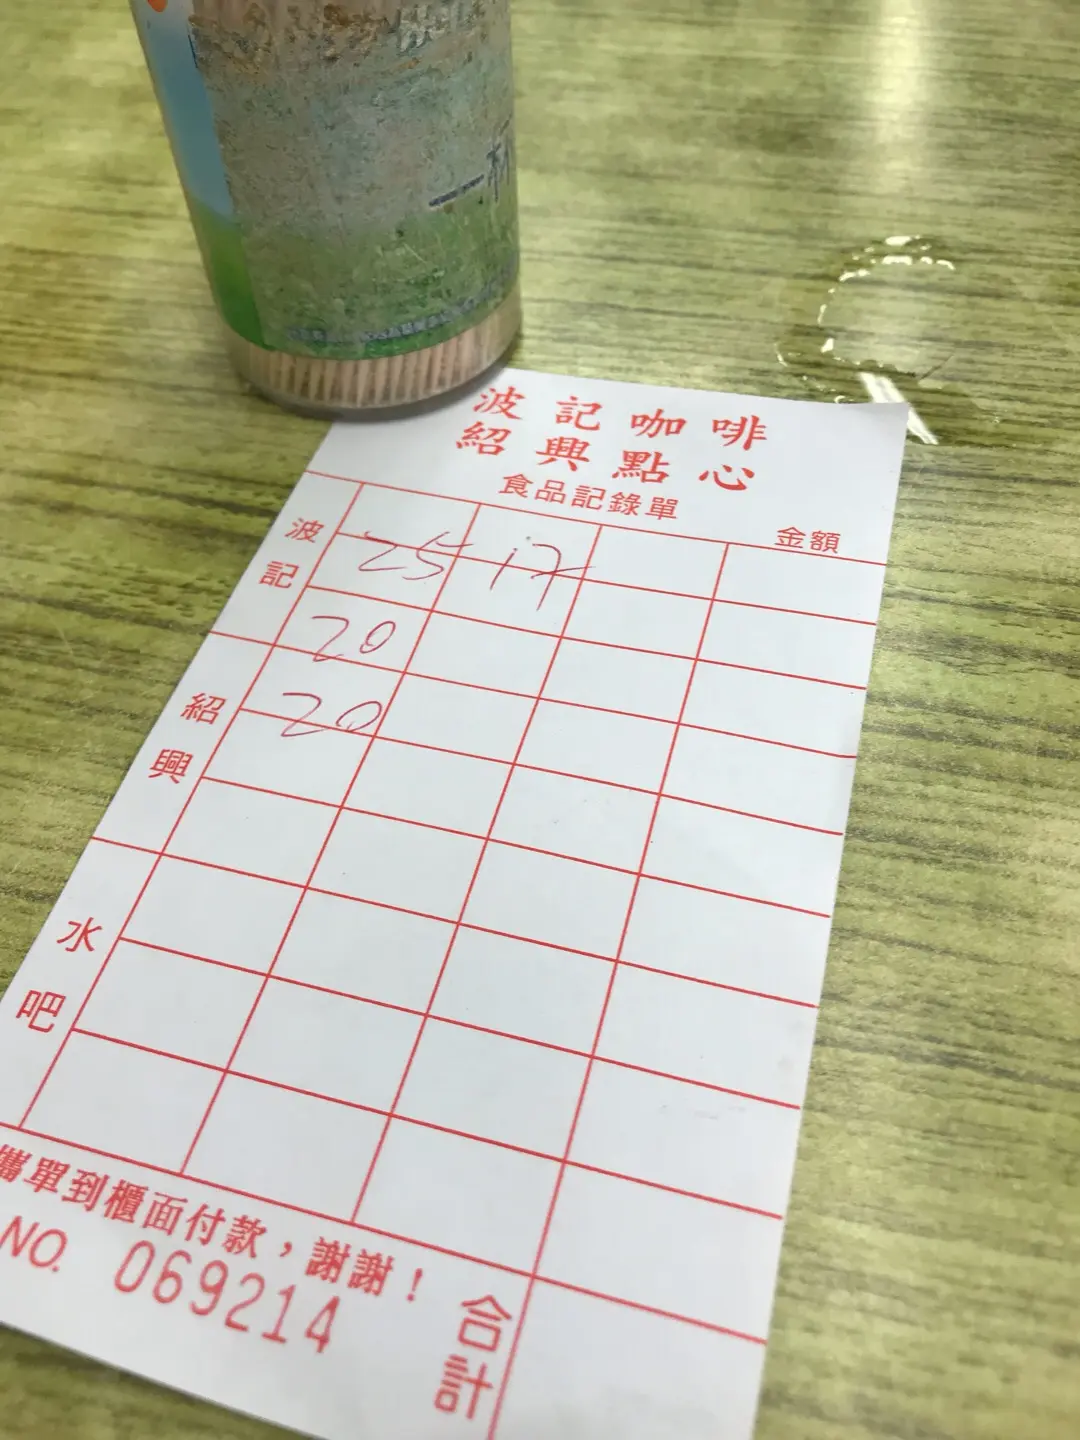 一杯
波記咖啡
紹興點心
食品記錄單
金額
波記
25 17
20
紹興
20
水吧
攜單到櫃面付款，謝謝！
NO. 069214
合計